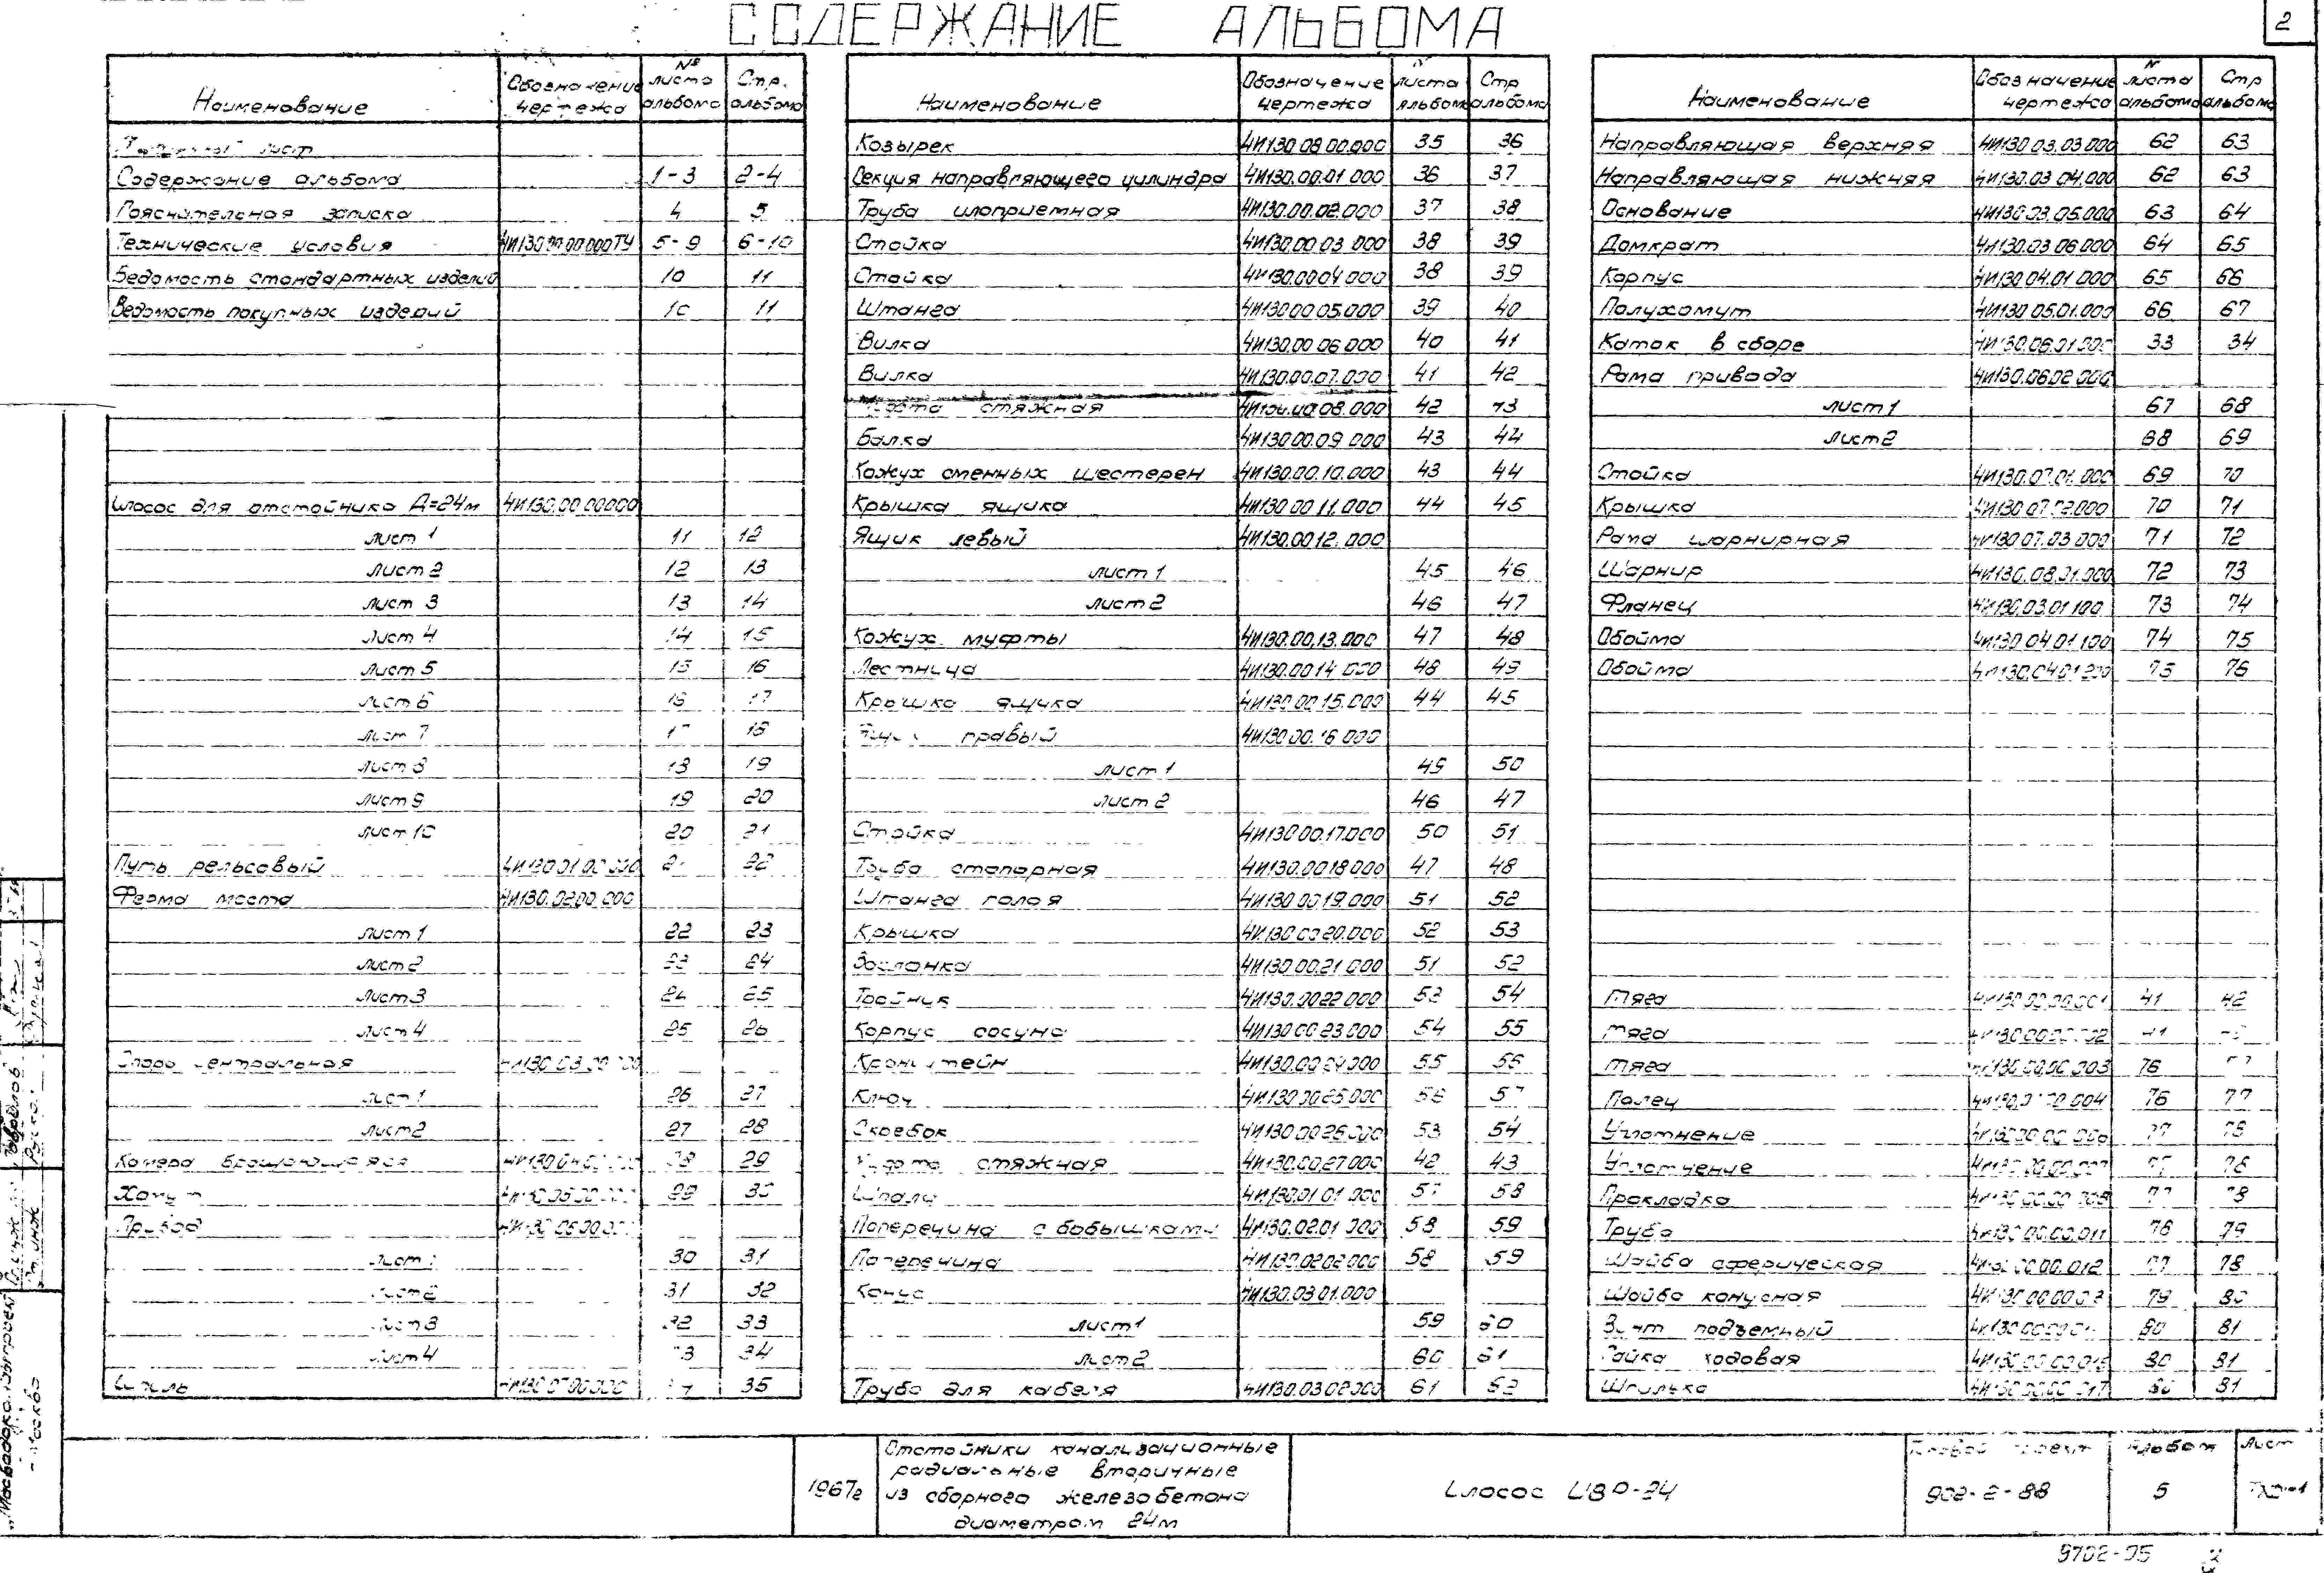 СОДЕРЖАНИЕ АЛЬБОМА
2
Наименование Обозначение чертежа № листа альбома Стр. альбома
лист
Содержание альбома 1-3 2-4
Пояснительная записка 4 5
Технические условия 4И130.00.00.000ТУ 5-9 6-10
Ведомость стандартных изделий 10 11
Ведомость покупных изделий 10 11
Илосос для отстойника Д=24м 4И130.00.00000
Лист 1 11 12
Лист 2 12 13
Лист 3 13 14
Лист 4 14 15
Лист 5 15 16
Лист 6 16 17
Лист 7 17 18
Лист 8 18 19
Лист 9 19 20
Лист 10 20 21
Путь рельсовый 4И130.01.00.000 22
Ферма моста 4И130.02.00.000
Лист 1 22 23
Лист 2 23 24
Лист 3 24 25
Лист 4 25 26
Опора центральная 4И130.03.00.000
Лист 1 26 27
Лист 2 27 28
Камера вращающаяся 29
Хомут 29 30
Привод
Лист 1 30 31
Лист 2 31 32
Лист 3 32 33
Лист 4 33 34
35
Наименование Обозначение чертежа N листа альбома Стр альбома
Козырек 4И130.08.00.000 35 36
Секция направляющего цилиндра 4И130.00.01.000 36 37
Труба илоприемная 4И130.00.02.000 37 38
Стойка 4И130.00.03.000 38 39
Стойка 4И130.0004.000 38 39
Штанга 4И130.00.05.000 39 40
Вилка 4И130.00.06.000 40 41
Вилка 4И130.00.07.000 41 42
Муфта стяжная 4И130.00.08.000 42 43
Балка 4И130.00.09.000 43 44
Кожух сменных шестерен 4И130.00.10.000 43 44
Крышка ящика 4И130.00.11.000 44 45
Ящик левый 4И130.0012.000
Лист 1 45 46
Лист 2 46 47
Кожух муфты 4И130.00.13.000 47 48
Лестница 4И130.00.14.000 48 49
Крышка ящика 4И130.00.15.000 44 45
Ящик правый 4И130.00.16.000
Лист 1 49 50
Лист 2 46 47
Стойка 4И130.00.17.000 50 51
Труба стопорная 4И130.0018.000 47 48
Штанга полая 4И130.0019.000 51 52
Крышка 4И130.0020.000 52 53
Заслонка 4И130.00.21.000 51 52
Тройник 4И130.0022.000 53 54
Корпус сосуна 4И130.00.23.000 54 55
Кронштейн 4И130.00.24.000 55 56
Ключ 4И130.00.25.000 56 57
Скребок 4И130.00.26.000 53 54
Муфта стяжная 4И130.00.27.000 42 43
Шпала 4И130.01.01.000 57 58
Поперечина с бобышками 4И130.02.01.000 58 59
Поперечина 4И130.02.02.000 58 59
Конус 4И130.03.01.000
Лист 1 59 60
Лист 2 60 61
Труба для кабеля 4И130.03.02.000 61 62
Наименование Обозначение чертежа N листа альбома Стр альбома
Направляющая верхняя 4И130.03.03.000 62 63
Направляющая нижняя 4И130.03.04.000 62 63
Основание 4И130.03.05.000 63 64
Домкрат 4И130.03.06.000 64 65
Корпус 4И130.04.01.000 65 66
Полухомут 4И130.05.01.000 66 67
Каток в сборе 4И130.06.01.000 33 34
Рама привода 4И130.06.02.000
Лист 1 67 68
Лист 2 68 69
Стойка 4И130.07.01.000 69 70
Крышка 4И130.07.02.000 70 71
Рама шарнирная 4И130.07.03.000 71 72
Шарнир 4И130.08.01.000 72 73
Фланец 4И130.03.01.100 73 74
Обойма 4И130.04.01.100 74 75
Обойма 4И130.04.01.200 75 76
Тяга 4И130.00.00.001 41 42
Тяга 4И130.00.00.002 41
Тяга 4И130.00.00.003 76
Палец 4И130.00.00.004 76 77
Уплотнение 4И130.00.00.006 77 78
Уплотнение 4И130.00.00.007 77 78
Прокладка 77 78
Труба 4И130.00.00.011 78 79
Шайба сферическая 4И130.00.00.012 77 78
Шайба конусная 79 80
Винт подъемный 80 81
Гайка ходовая 4И130.00.00.016 80 81
Шпилька 4И130.00.00.017 80 81
1967г
Отстойники канализационные
радиальные вторичные
из сборного железобетона
диаметром 24м
Илосос ИВР-24
Типовой проект 902-2-88
Альбом 5
Лист
9702-05 3
Москва